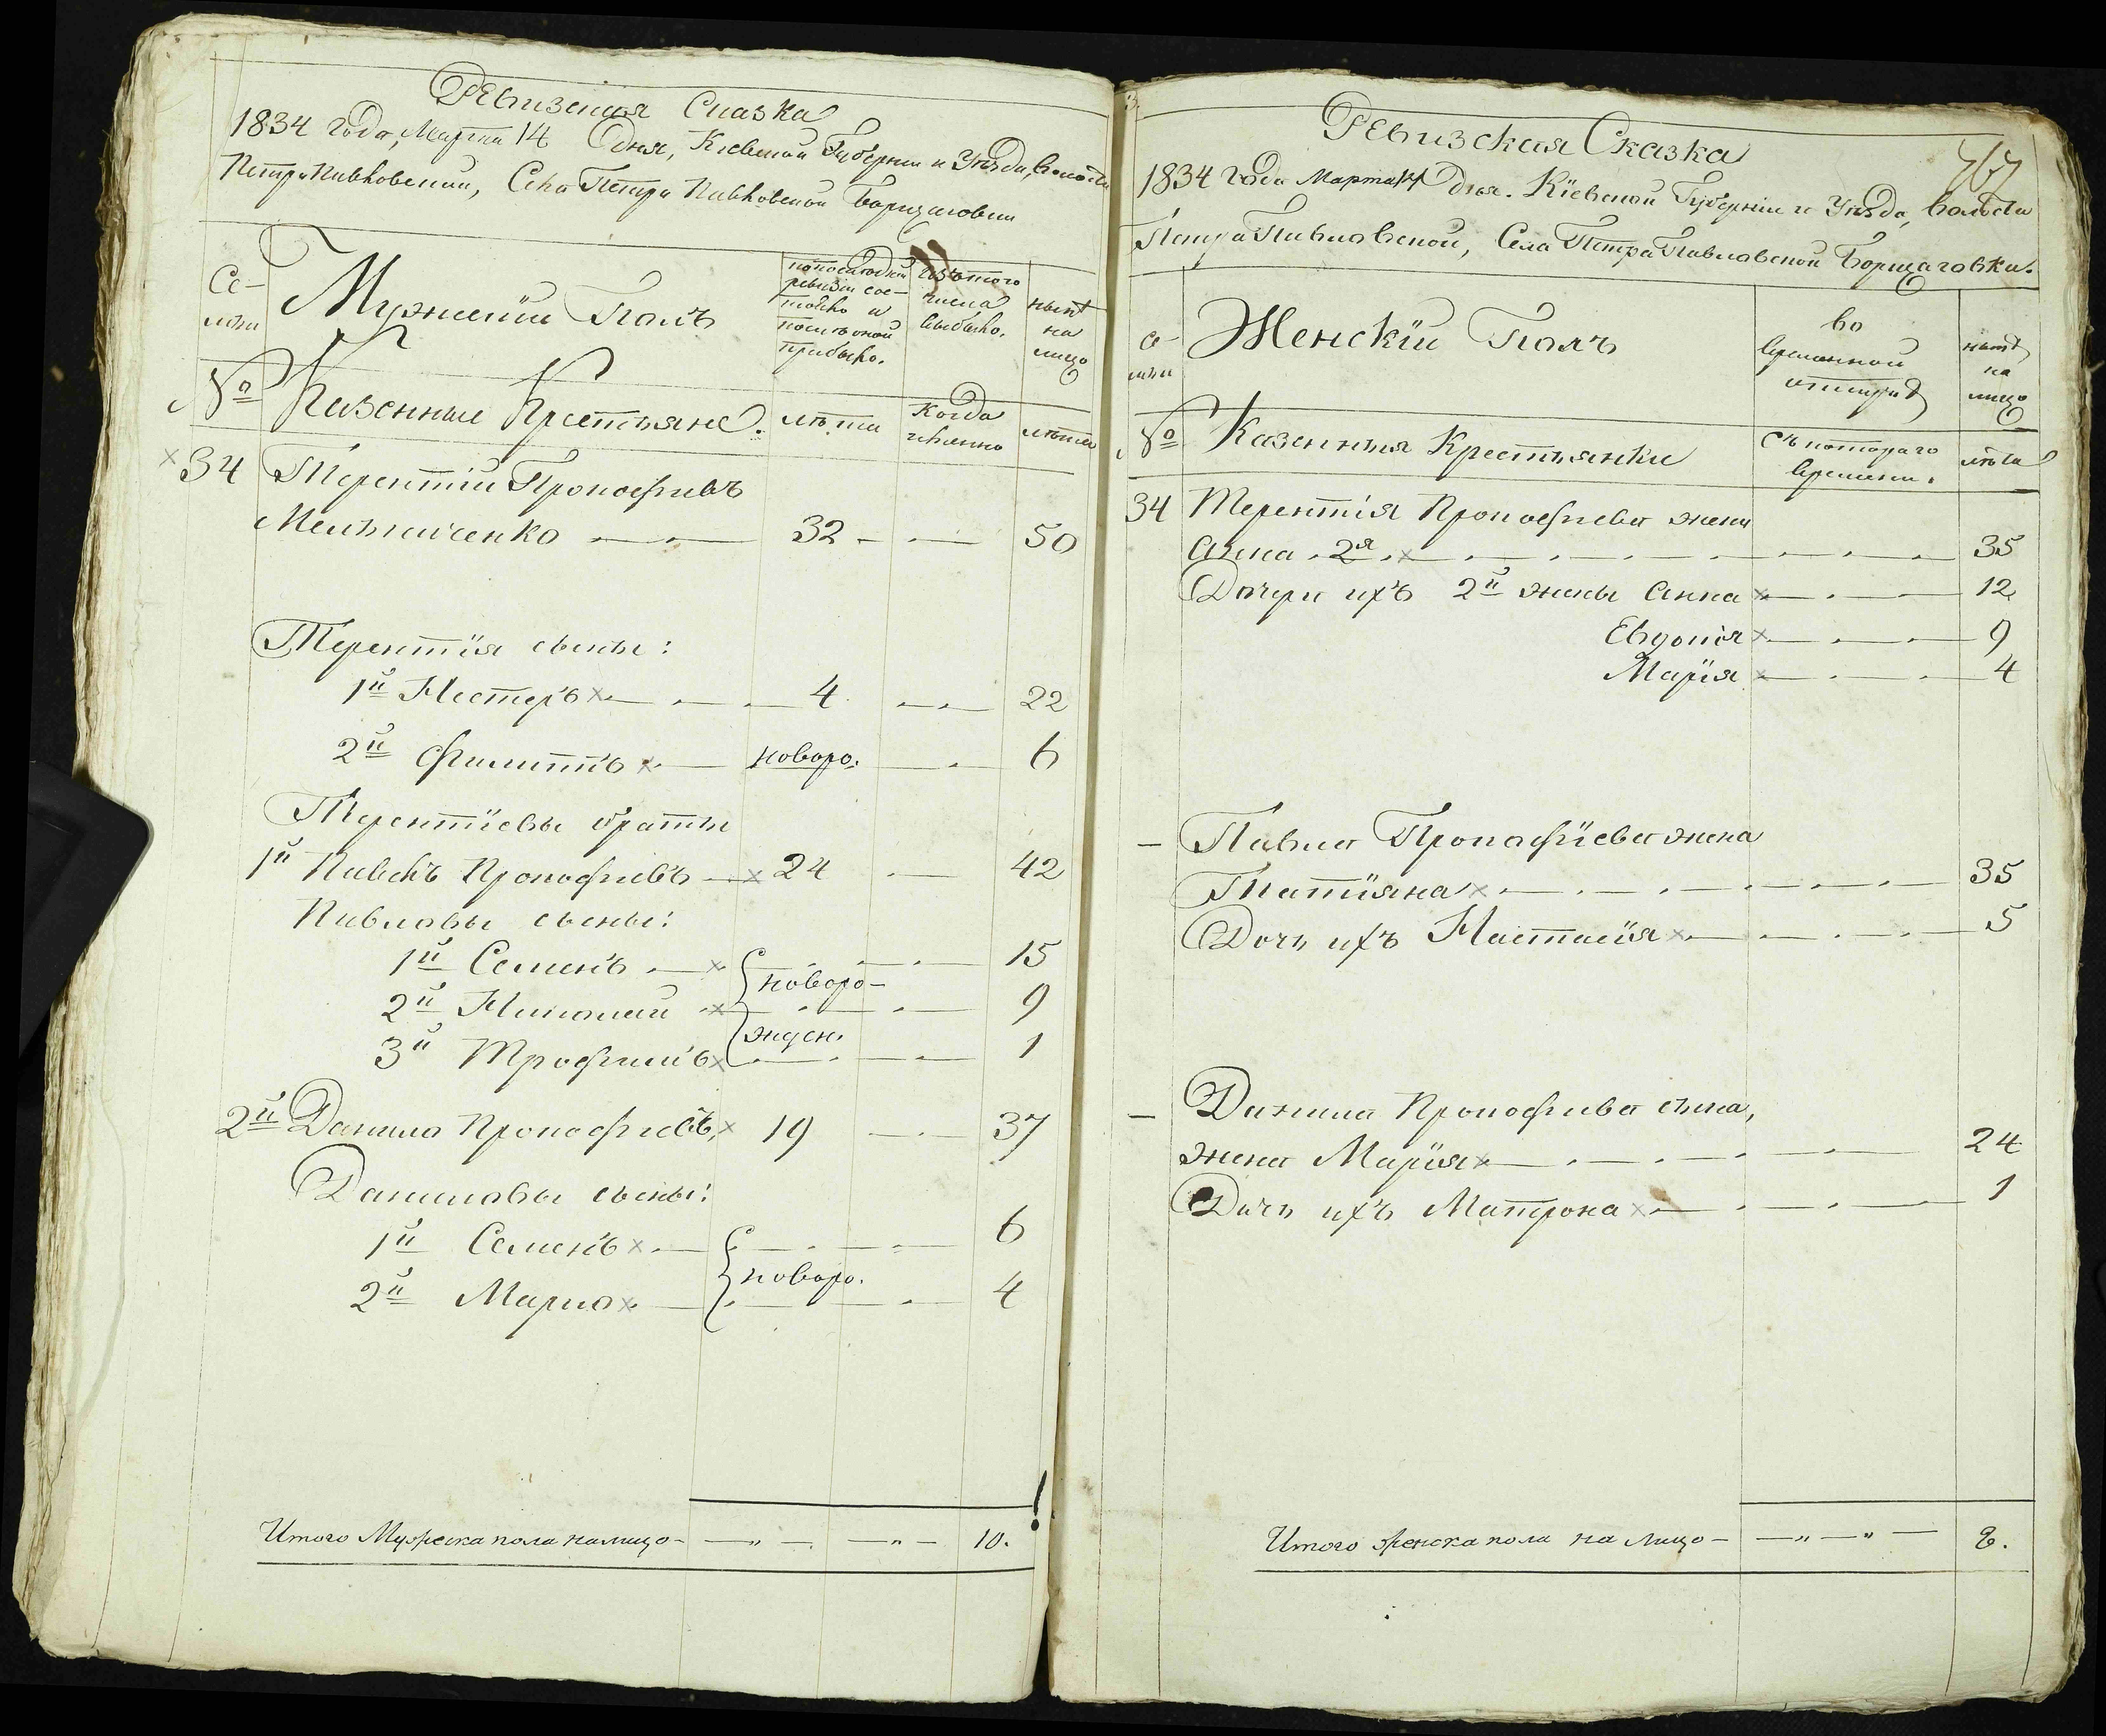 Ревизская Сказка
1834 года, Марта 14 Дня, Киевской Губернии и Уезда, волости
Петро Павловской, Села Петро Павловской Борщаговки
Се-
мьи
Мужеский Полъ
по последней
ревизии сос-
тояло и
после оной
прибыло.
Изъ того
числа
выбыло.
ныне
на
лицо
№
Казенные Крестьяне.
лета
когда
именно
лета
34 Терентий Прокофиевъ
Мельниченко 32 50
Терентїя сыны:
1й Нестеръ 4 22
2й Филиппъ новоро. 6
Терентїевы браты
1й Павелъ Прокофиевъ 24 42
Павловы сыны:
1й Семенъ 15
новоро-
2й Николай 9
жден.
3й Трофимъ 1
2й Данило Прокофиевъ, 19 37
Даниловы сыны:
1й Семенъ 6
новоро.
2й Марко 4
Итого Мужеска пола налицо - 10.
Ревизская Сказка
1834 года Марта 14 Дня. Кїевской Губернїи и Уезда, волости
Петра Павловской, Села Петра Павловской Борщаговки.
се-
мьи
Женскїй Полъ
во
временной
отлучке
ныне
на
лицо
№
Казенныя Крестьянки
съ котораго
времени.
лета
34 Терентїя Прокофиева жена
Анна 2я 35
Дочери ихъ 2й жены Анна 12
Евдокїя 9
Марїя 4
Павла Прокофїева жена
Татїяна 35
Дочь ихъ Настасїя 5
Данила Прокофиева сына,
жена Марїя 24
Дочь ихъ Матрона 1
Итого женска пола на лицо - 8.